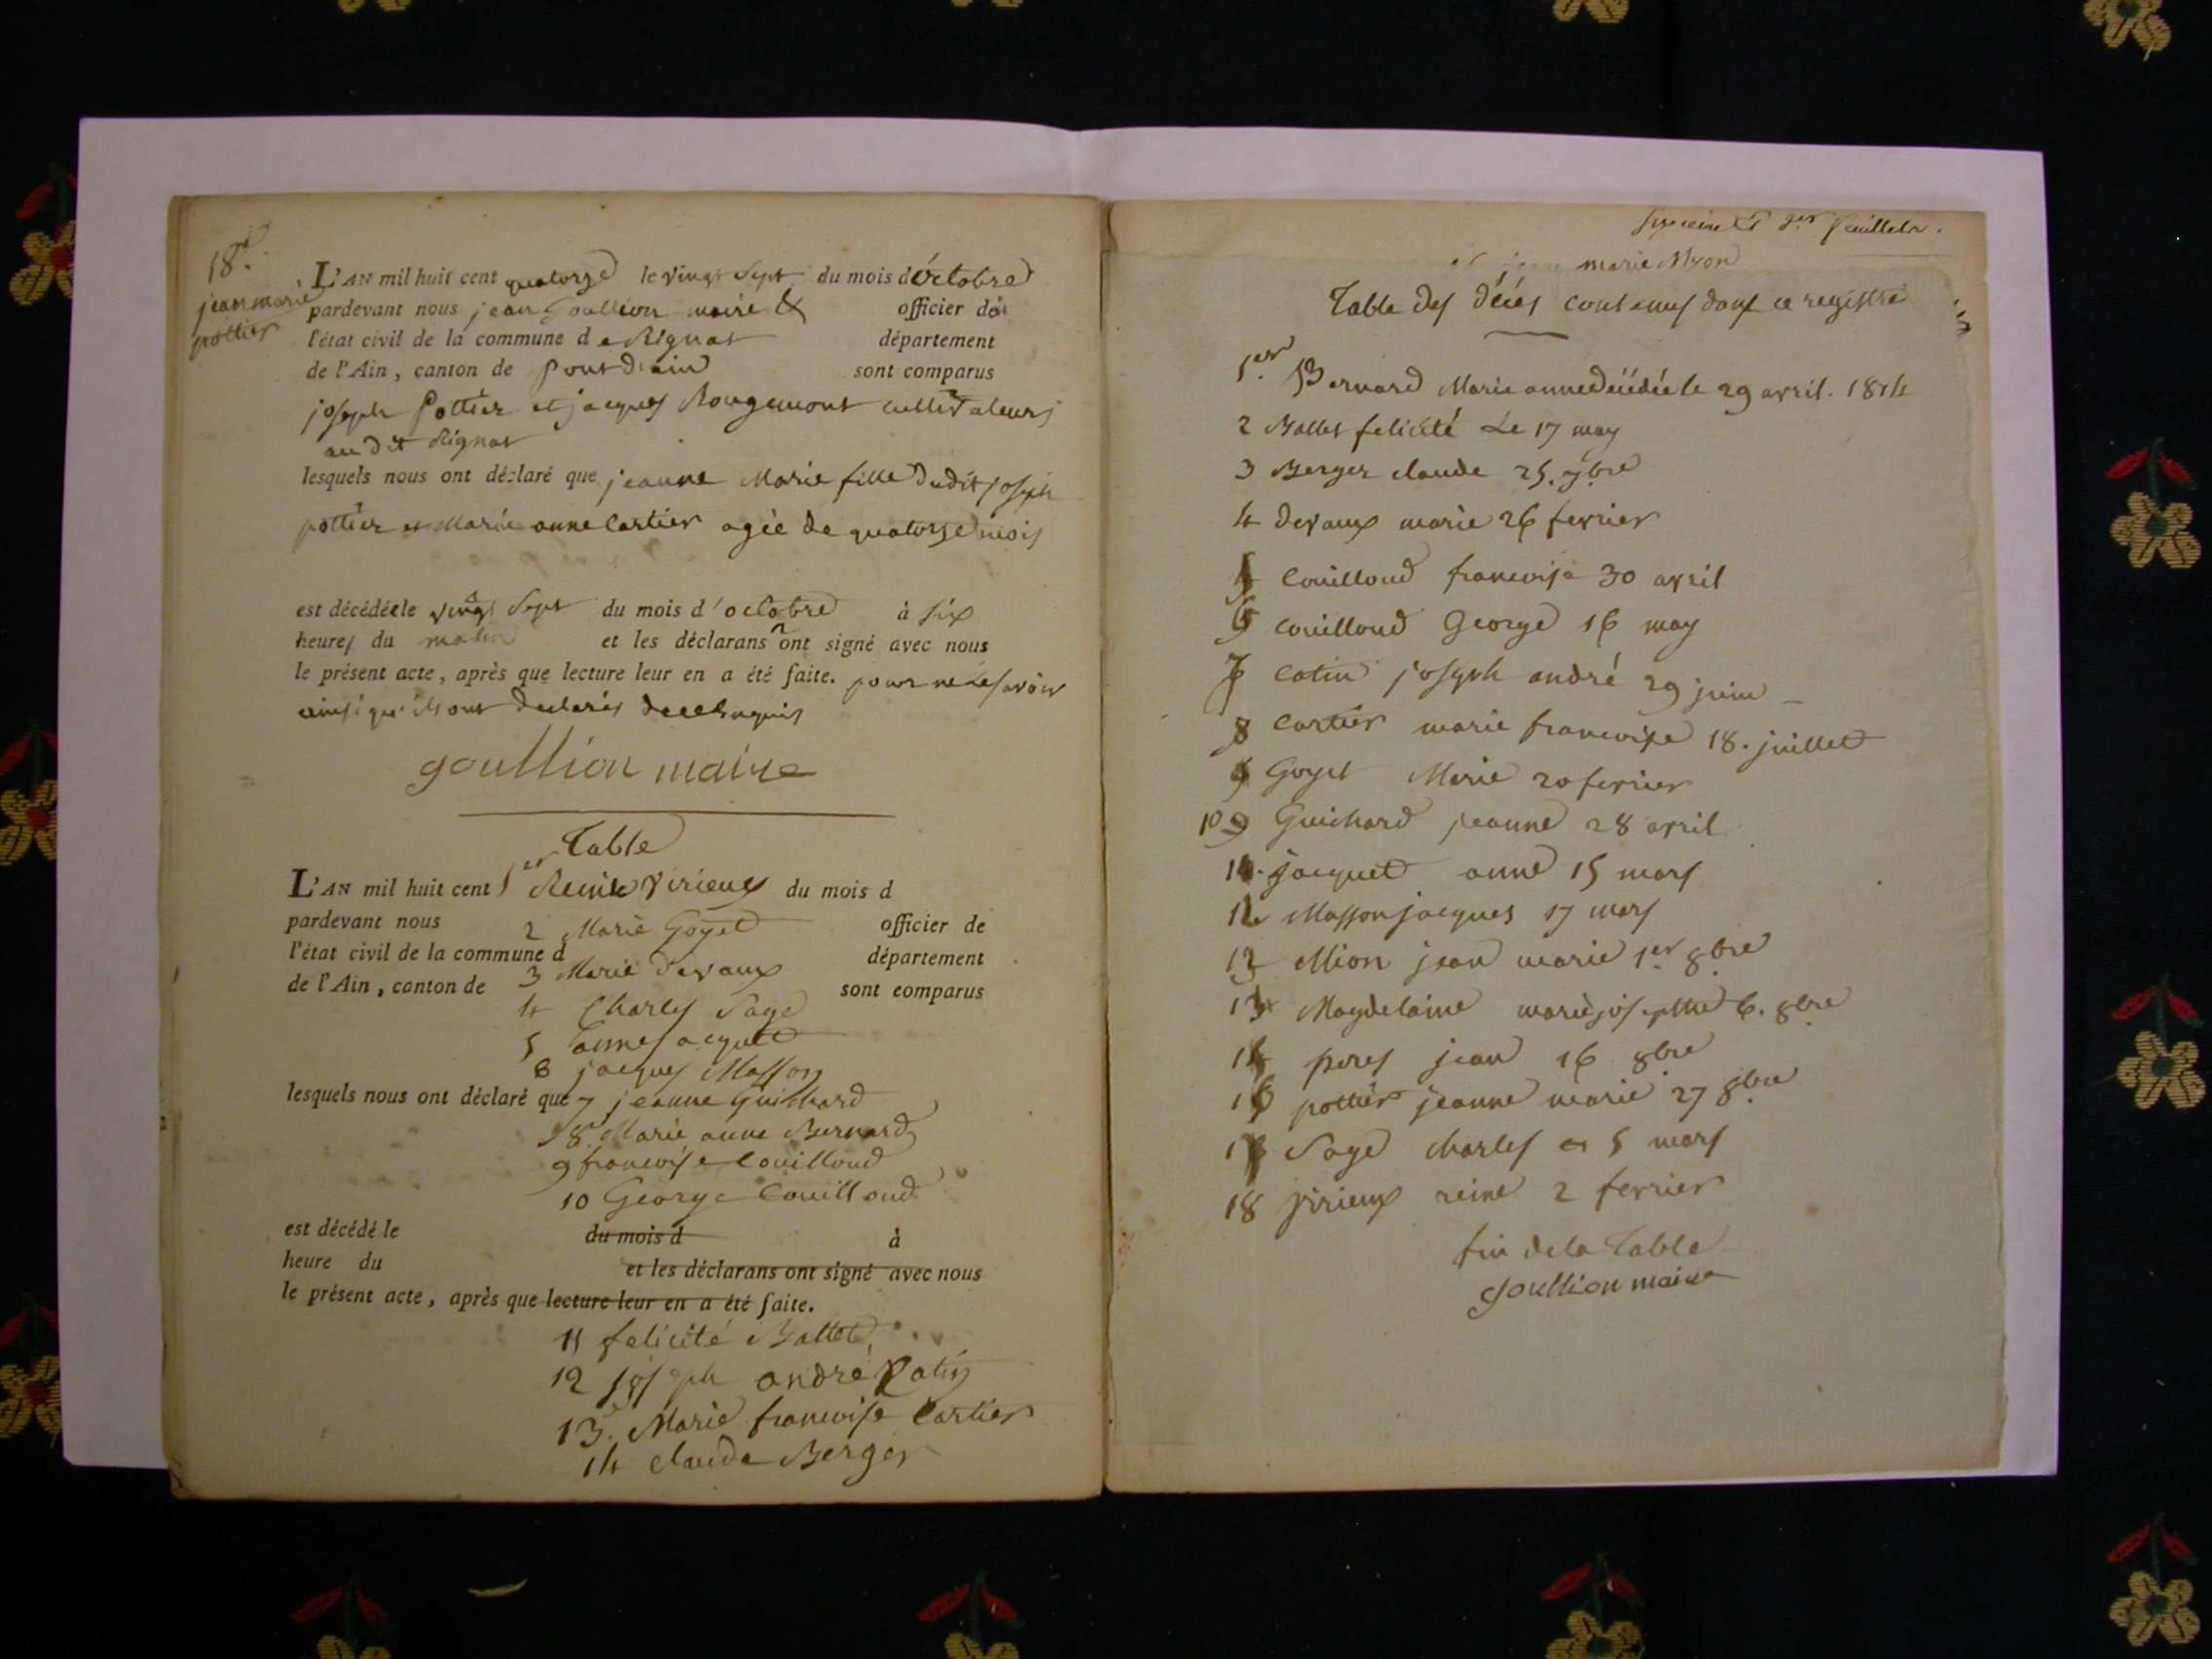 18e.
jean marie
pottier
L'AN mil huit cent quatorze le vingt Sept du mois d'octobre
pardevant nous jean Goullion maire & officier de
l'état civil de la commune de Rignat département
de l'Ain, canton de pont d'ain sont comparus
joseph Pottier et jacques Rougemont cultivateurs
au dit Rignat
lesquels nous ont déclaré que jeanne Marie fille dudit joseph
pottier et Marie anne Cartier agée de quatorze mois
est décédée le vingt Sept du mois d'octobre à six
heures du matin et les déclarans n'ont signé avec nous
le présent acte, après que lecture leur en a été faite. pour ne le savoir
ainsi qu'ils ont declarés de ce enquis
goullion maire
Table
L'AN mil huit cent 1er Reine Virieux du mois d
pardevant nous 2 Marie Goyet officier de
l'état civil de la commune d département
de l'Ain, canton de 3 Marie devaux sont comparus
4 Charles Sage
5 anne jacquet
6 jacques Masson
lesquels nous ont déclaré que 7 jeanne Guichard
8 Marie anne Bernard
9 francoise Couilloud
10 George Couilloud
est décédé le du mois d à
heure du et les déclarans ont signé avec nous
le présent acte, après que lecture leur en a été faite.
11 felicité Ballet
12 joseph andré Catin
13. Marie francoise Cartier
14 claude Berger
feuillets.
marie Myon
Table des décés contenus dans ce registre
1er. Bernard Marie anne décédée le 29 avril. 1814
2 Ballet felicité Le 17 may
3 Berger claude 25. 7bre
4 devaux marie 26 fevrier
5 Couilloud francoise 30 avril
6 couilloud George 16 may
7 Catin joseph andré 29 juin
8 Cartier marie francoise 18. juillet
9 Goyet Marie 20 fevrier
10 Guichard jeanne 28 avril
11. jacquet anne 15 mars
12 Masson jacques 17 mars
13 Mion jean marie 1er 8bre
14 Magdelaine marie josephte 6. 8bre
15 pores jean 16 8bre
16 pottier jeanne marie 27 8bre
17 Sage charles 5 mars
18 Virieux reine 2 fevrier
fin de la Table
Goullion maire